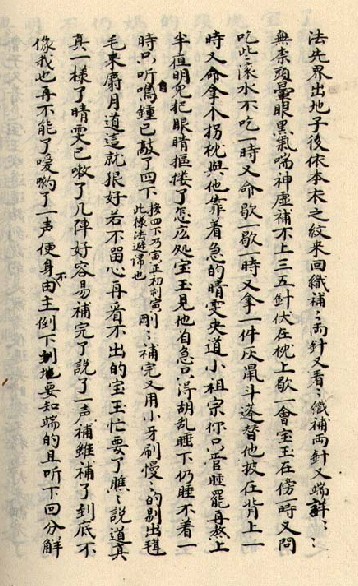 法先界出地子後依本衣之紋来回織補〻兩針又看〻織補兩針又端詳〻〻
無奈頭暈眼黑氣喘神虛補不上三五針伏在枕上歇一會宝玉在傍一時又問
吃些滾水不吃一時又命歇一歇一時又拿一件灰鼠斗逢替他披在背上一
時又命拿个拐枕與他靠着急的晴雯央道小祖宗你只管睡罷再熬上
半夜明兒把眼睛摳摟了怎広処宝玉見他着急只得胡乱睡下仍睡不着一
時只听自鳴鐘已敲了四下按四下乃寅正初刻寅此樣法避諱也剛〻補完又用小牙刷慢〻的剔出
毛来麝月道這就狠好若不留心再看不出的宝玉忙要了瞧〻說道真
真一樣了晴雯已嗽了几陣好容易補完了說了一声補雖補了到底不
像我也再不能了噯喲了一声便身不由主倒下要知端的且听下回分解